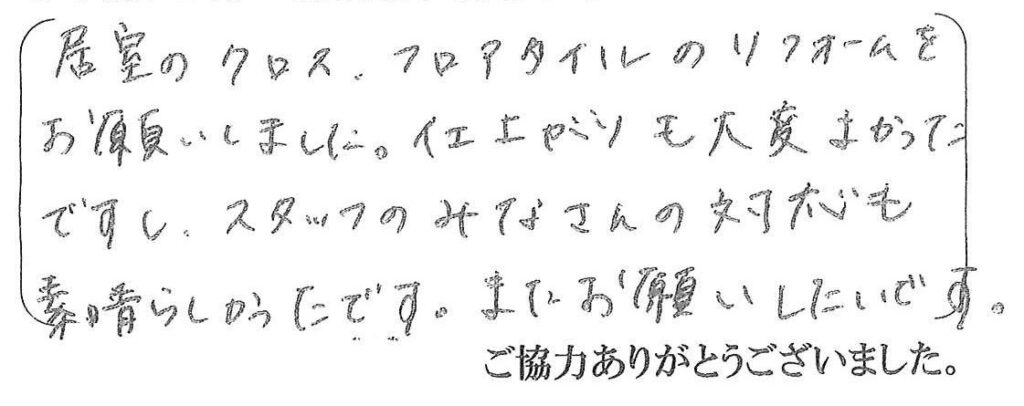 居室のクロス、フロアタイルのリフォームを
お願いしました。仕上がりも大変よかった
ですし、スタッフのみなさんの対応も
素晴らしかったです。またお願いしたいです。
ご協力ありがとうございました。